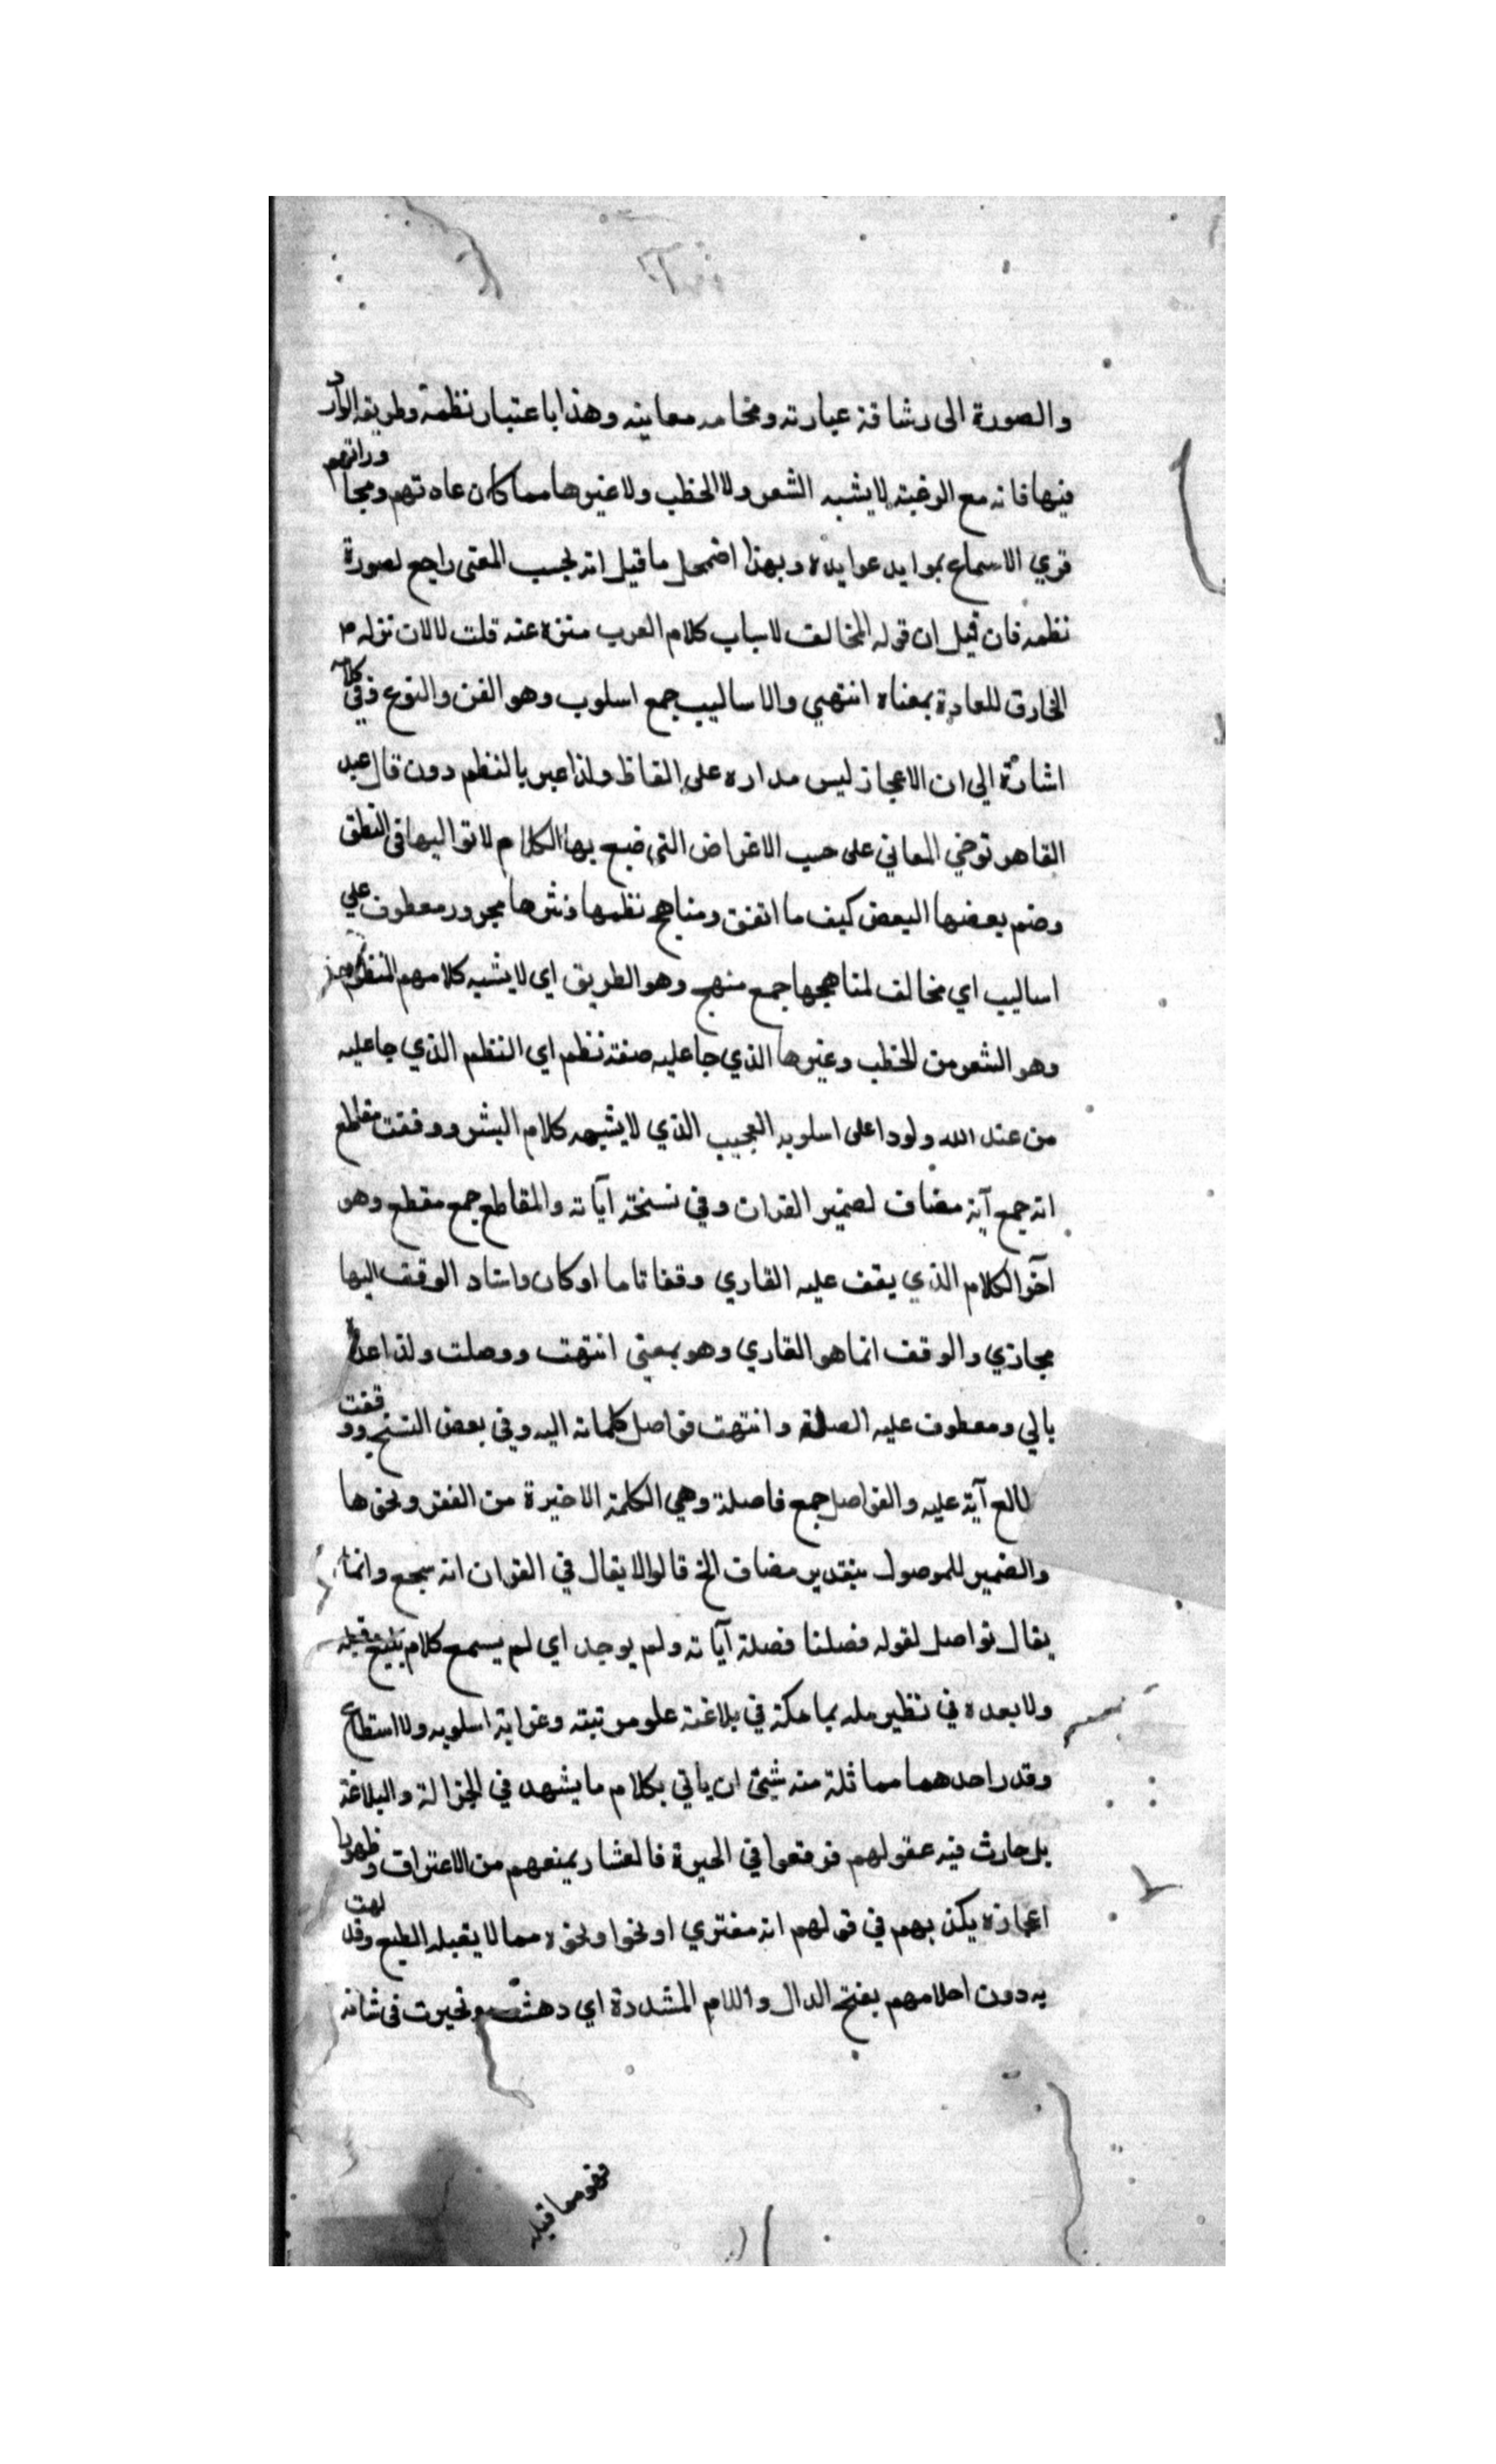 والصورة الى رشاقة عبارته وفخامه معاينه وهذا باعتبار نظمه وطريقه الوارد
فيها فانه مع الوغيته لا يشبه الشعر ولا الخطب ولا غيرها مما كان عاه تهم ومجا وراتهم
قري الاسماع بموايد عوايده وبهذا اضمحل ما قيل انه لحسب المعنى راجع لصورة
نظمه فان قيل ان قوله المخالف لاساب كلام العرب منزه عنه قلت لا لان نزله
الخارق للعادة بمعناه انتهي والاساليب جمع اسلوب وهو الفن والنوع وفي كلامه
اشارة الي ان الاعجاز ليس مداره على الفاظ ولذا عبر بالنظم دون قال عبد
القاهر توخي المعاني على حسب الاغراض التي ضبع بها الكلام لا تواليها في النطق
وضم بعضها البعض كيف ما اتفق ومناهج نظمها ونثرها مجرور معطوف علي
اساليب اي مخالف لمناهجها جمع منهج وهو الطريق اي لا يشبه كلامهم المنظوم
وهو الشعر من الخطب وغيرها الذي جا عليه صفة نظم اي النظم الذي جا عليه
من عند الله ولودا على اسلوبه العجيب الذي لا يشبهه كلام البشر ووقفت مقاطع
انه جمع آية مضاف لضمير القران وفي نسخة آياته والمقاطع جمع مقطع وهو
آخر الكلام الذي يقف عليه القاري وقفا تاما او كان واسناد الوقف اليها
مجازي والوقف انما هو القاري وهو بمعنى انتهت ووصلت ولذا عداه
بالي ومعطوف عليه الصلة وانتهت فواصل كلماته اليه وفي بعض النسخ ووقفت
لالع آية عليه والفواصل جمع فاصلة وهي الكلمة الاخيرة من الفقر ونحوها
والضمير للموصول بتقدير مضاف الخ قالوا لا يقال في القران انه سجع وانما
يقال فواصل لقوله فصلنا فصلة آياته ولم يوجد اي لم يسمع كلام بليغ قبله
ولا بعده في نظير مله بما مكة في بلاغة علو مرتبته وغرابة اسلوبه ولا استطاع
وقدر احدهما مماثلة منه شئ ان ياتي بكلام ما يشهد في الجزالة والبلاغة
بل حارث فيه عقولهم فوقعوا في الحيرة فالعشار يمنعهم من الاعتراف وظهور
اعجازه يكن بهم في قولهم انه مفتري او نحوا ونحوه مما لا يقبله الطبع وقد لهت
يه دون احلامهم بفتح الدال واللام المشددة اي دهشت وتحيرت في شانه